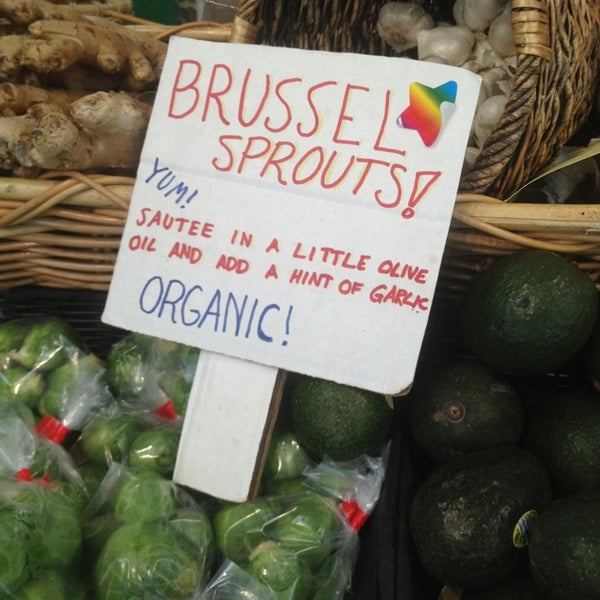 BRUSSEL
SPROUTS!
YUM!
SAUTEE IN A LITTLE OLIVE
OIL AND ADD A HINT OF GARLIC
ORGANIC!